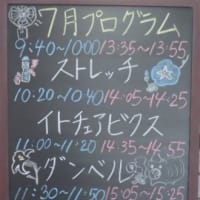 7月プログラム
9:40~10:00 13:35~13:55
ストレッチ
10:20~10:40 14:05~14:25
イトチェアビクス
11:00~11:20 14:35~14:55
ダンベル
11:30~11:50 15:05~15:25